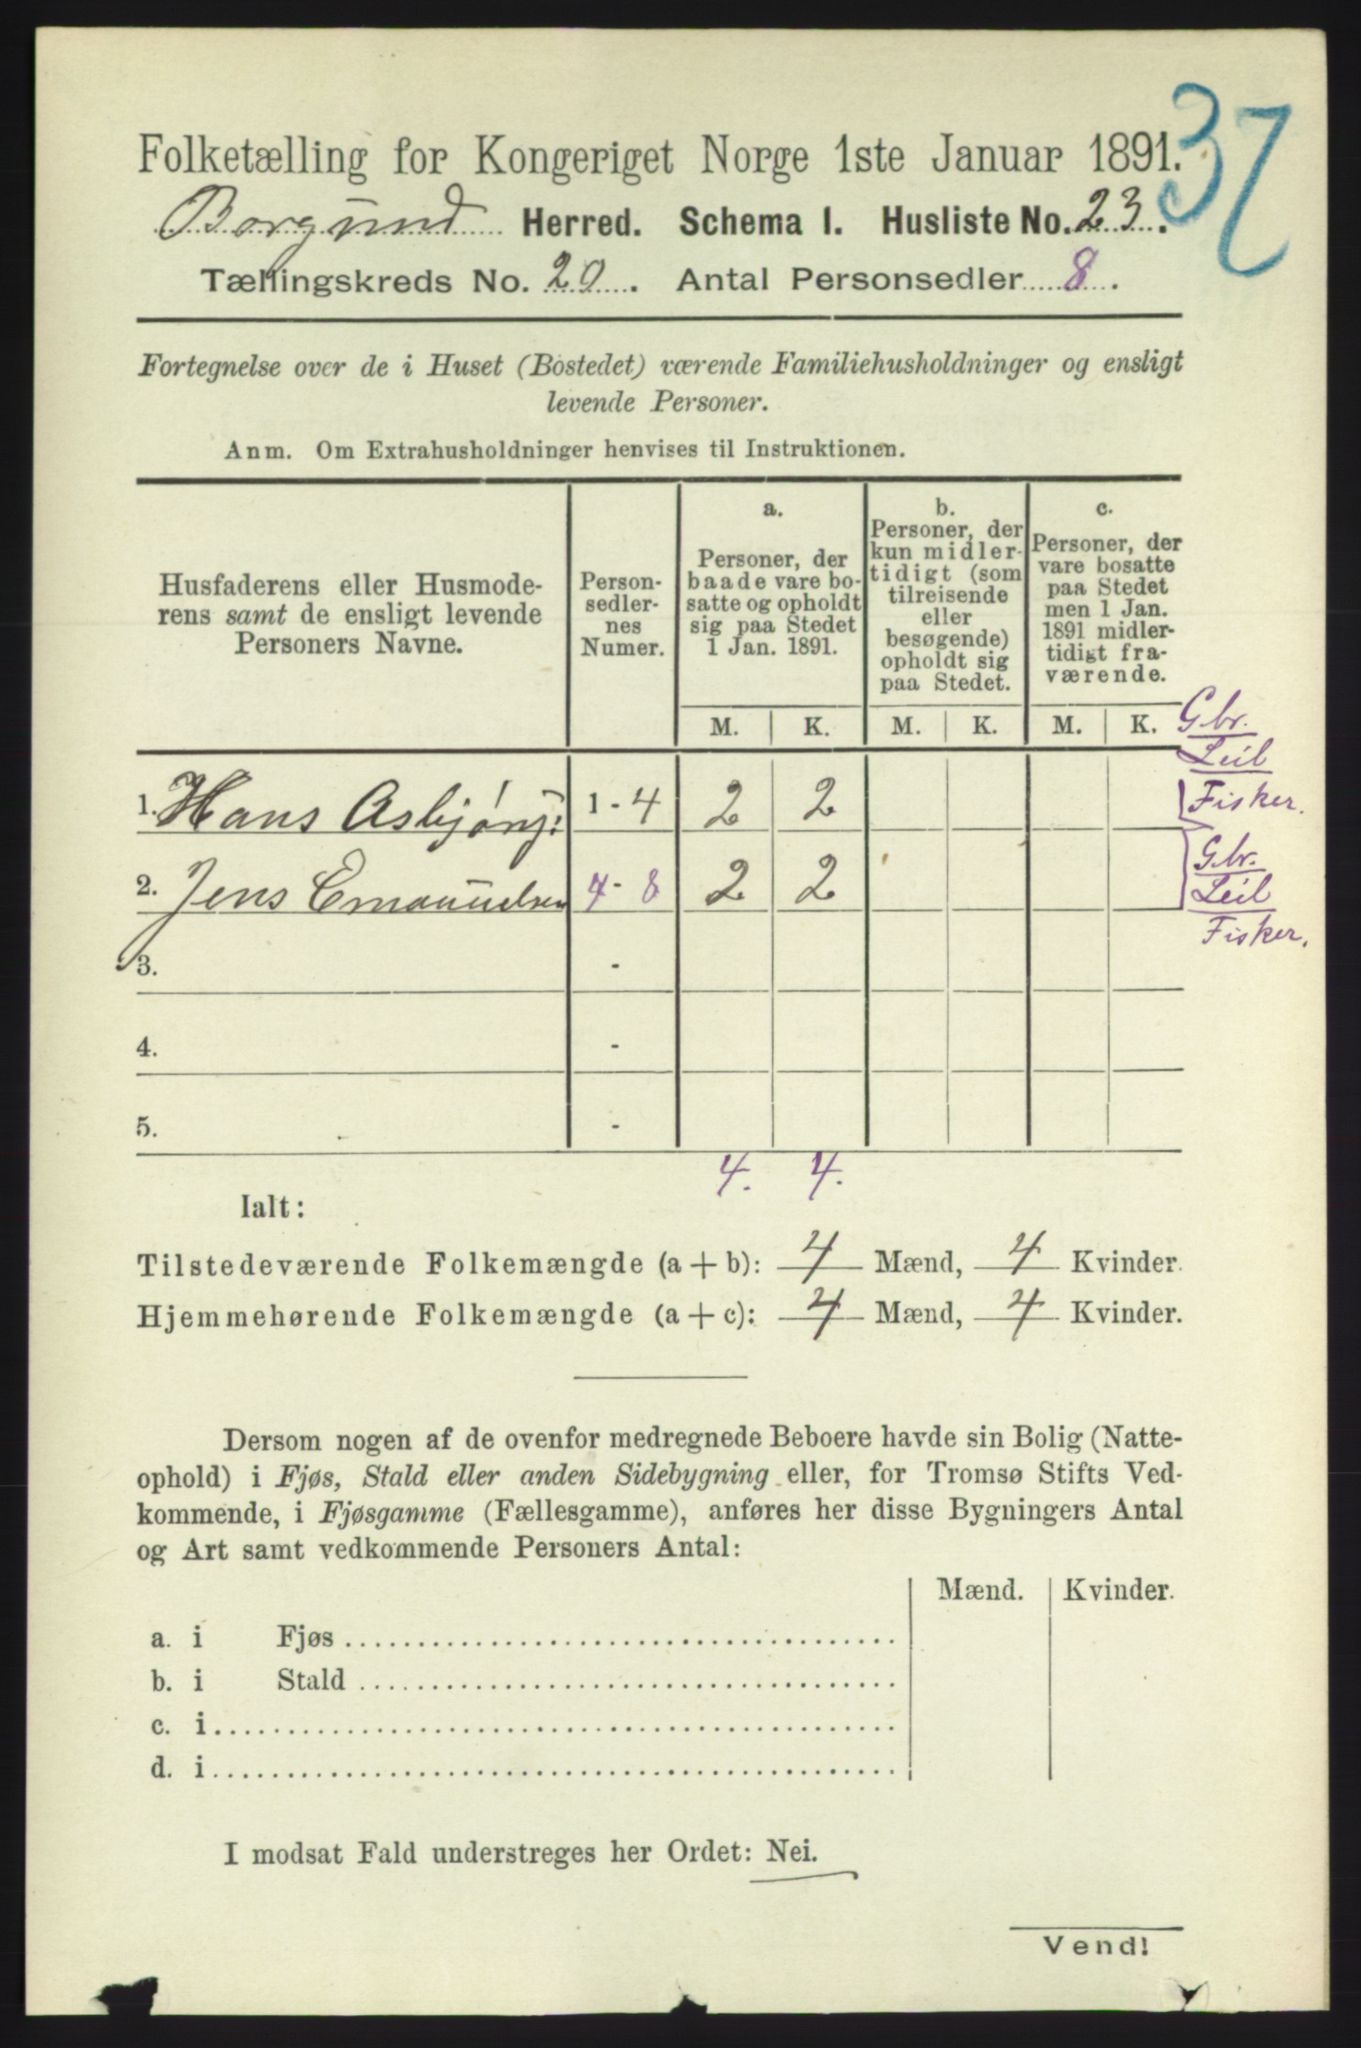 37
Folketælling for Kongeriget Norge 1ste Januar 1891.
Borgund Herred. Schema I. Husliste No. 23.
Tællingskreds No. 20. Antal Personsedler 8.
Fortegnelse over de i Huset (Bostedet) værende Familiehusholdninger og ensligt
levende Personer.
Anm. Om Extrahusholdninger henvises til Instruktionen.
Husfaderens eller Husmode-
rens samt de ensligt levende
Personers Navne.
Person-
sedler-
nes
Numer.
a.
Personer, der
baade vare bo-
satte og opholdt
sig paa Stedet
1 Jan. 1891.
b.
Personer, der
kun midler-
tidigt (som
tilreisende
eller
besøgende)
opholdt sig
paa Stedet.
c.
Personer, der
vare bosatte
paa Stedet
men 1 Jan.
1891 midler-
tidigt fra-
værende.
M. K. M. K. M. K.
Gbr.
Leil
Fisker.
1. Hans Asbjørns: 1 - 4 2 2
Gbr.
Leil
Fisker.
2. Jens Emanuelsen 4 - 8 2 2
3. -
4. -
5. -
4. 4.
Ialt:
Tilstedeværende Folkemængde (a + b): 4 Mænd, 4 Kvinder.
Hjemmehørende Folkemængde (a + c): 4 Mænd, 4 Kvinder.
Dersom nogen af de ovenfor medregnede Beboere havde sin Bolig (Natte-
ophold) i Fjøs, Stald eller anden Sidebygning eller, for Tromsø Stifts Ved-
kommende, i Fjøsgamme (Fællesgamme), anføres her disse Bygningers Antal
og Art samt vedkommende Personers Antal:
Mænd. Kvinder.
a. i Fjøs
b. i Stald
c. i
d. i
I modsat Fald understreges her Ordet: Nei.
Vend!